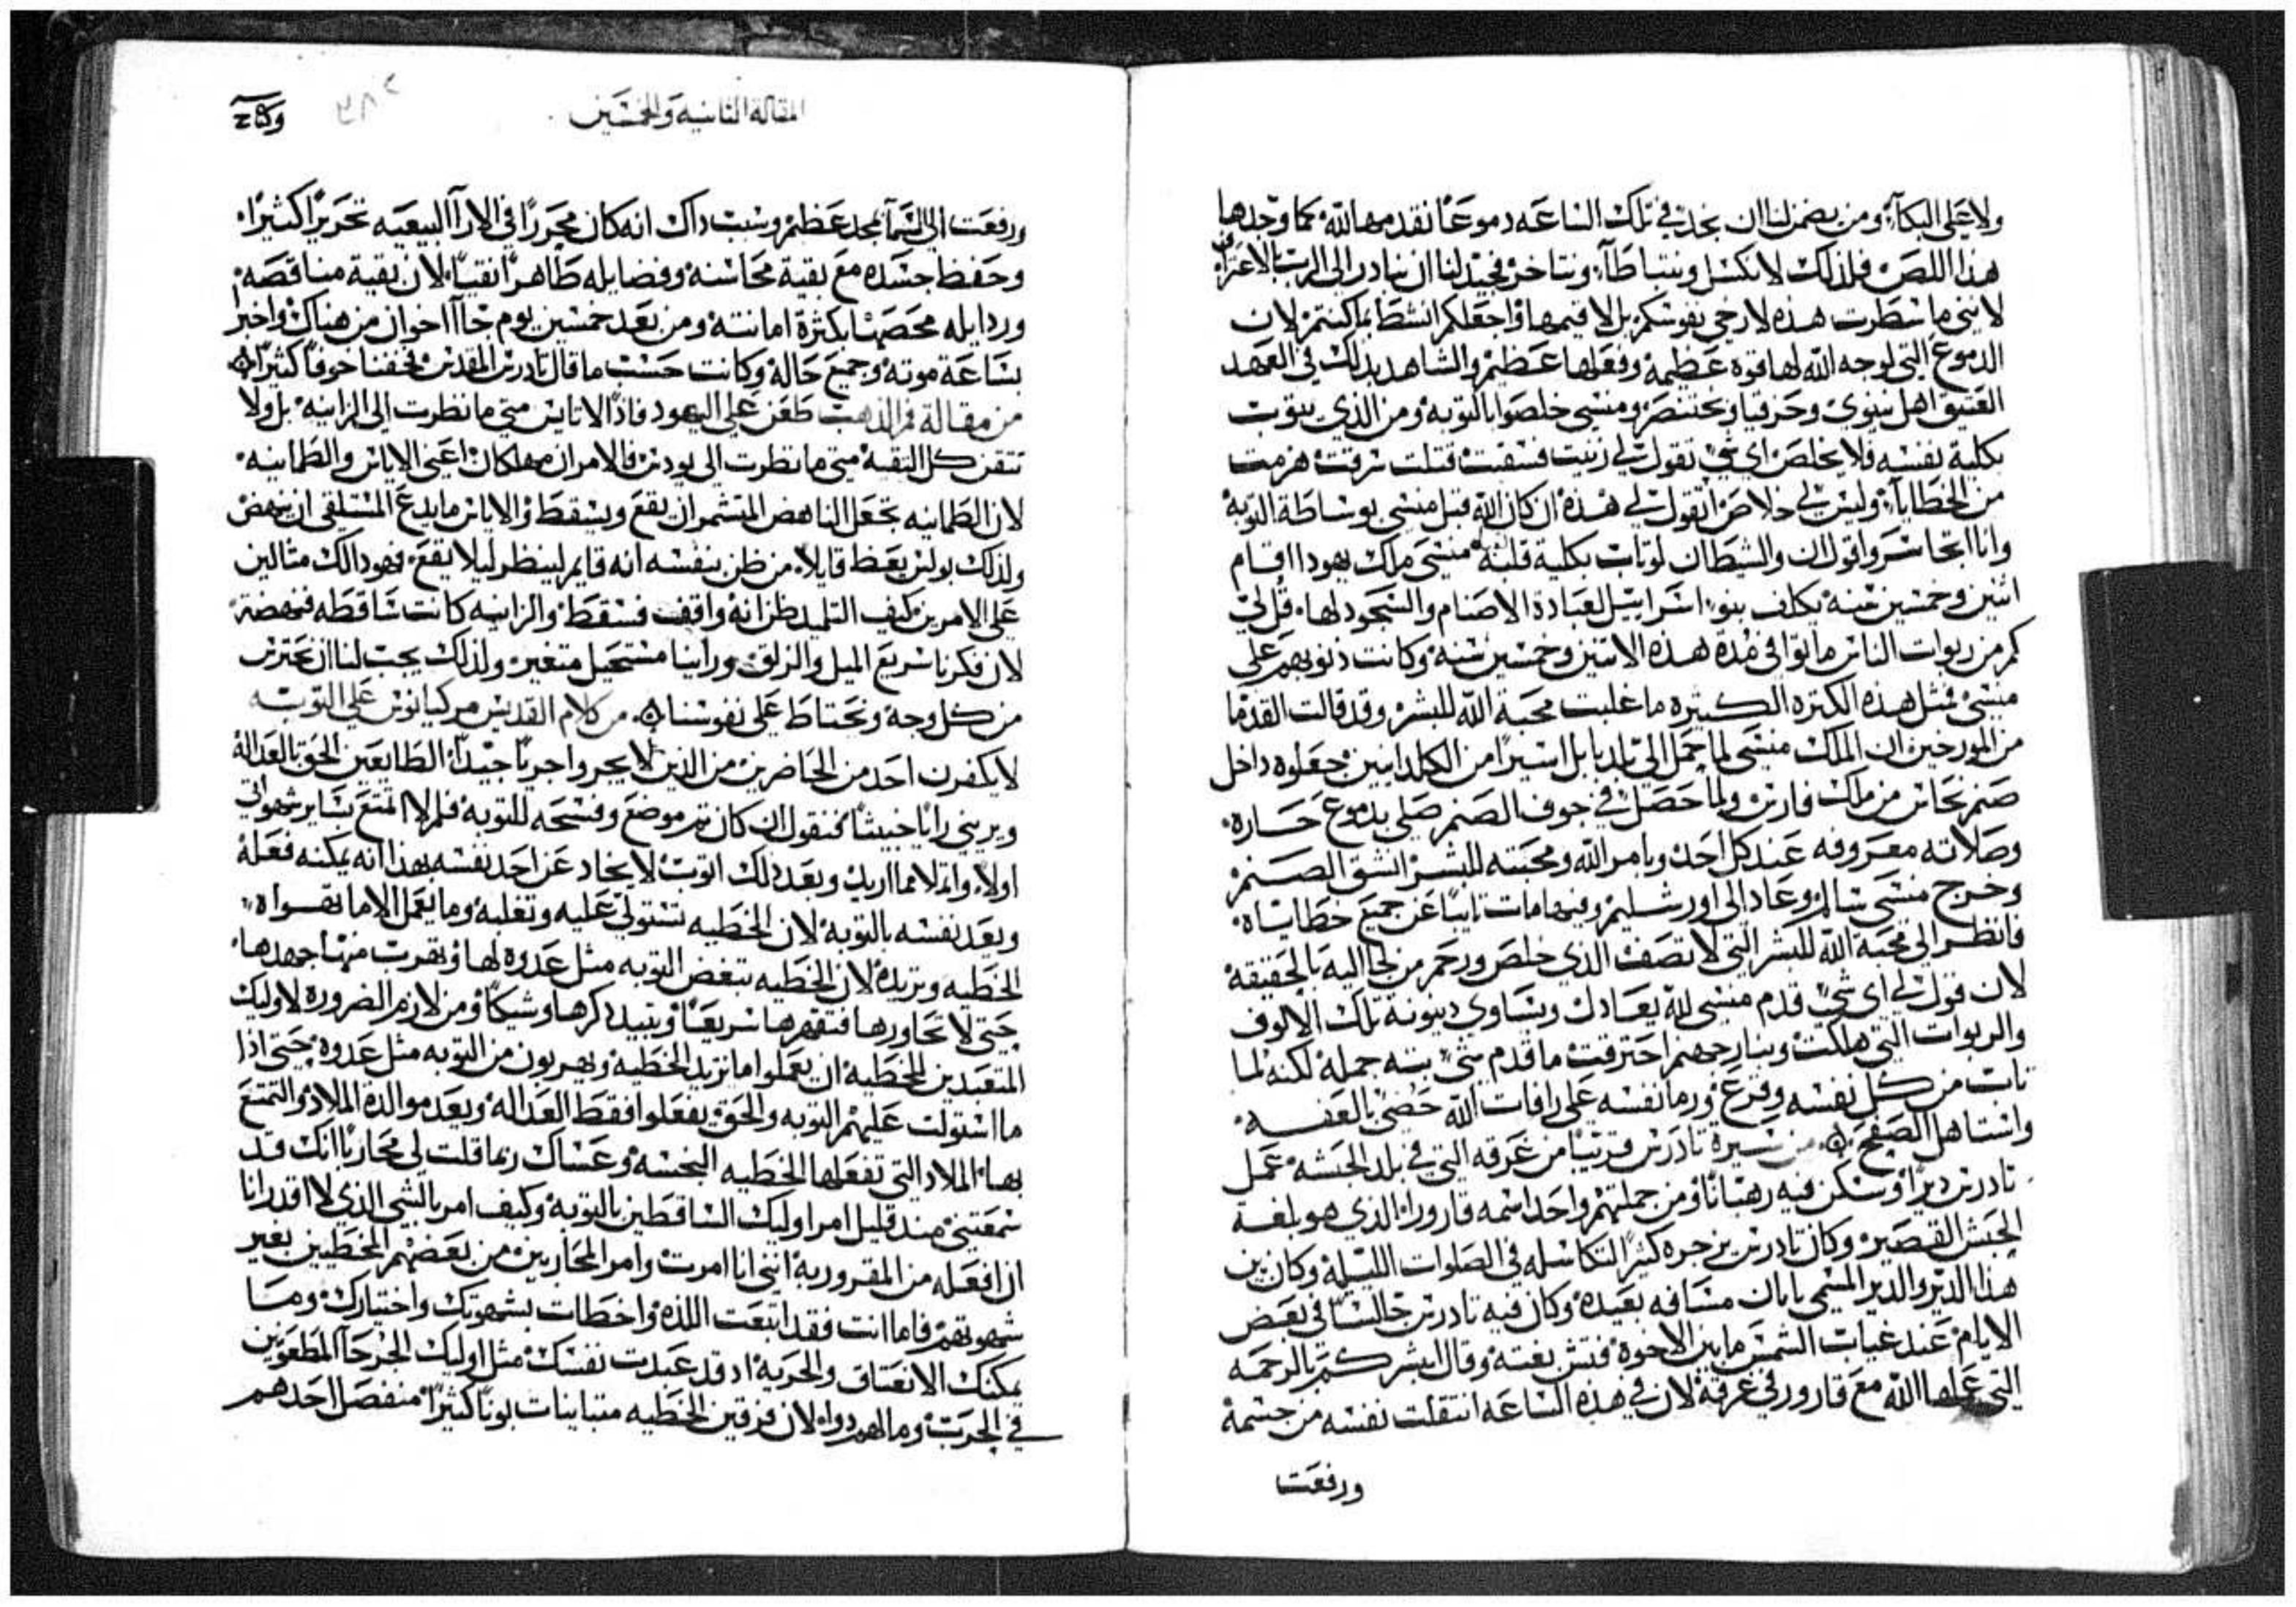 ولا على البكاء، ومن يضمن لنا ان نجد في تلك الساعه دموعًا نقدمها لله كما وجدها
هذا اللص، فلذلك لا نكسل ونتباطا، ونتاخر فجيد لنا ان نبادر الى الرب بالاعتراف
لانني ما سطرت هذه لارخي نفوسكم، بل لاقيمها واجعلكم انشط مما كنتم، لان
الدموع التي لوجه الله لها قوه عظيمه، وفعلها عظيم، والشاهد بذلك في العهد
العتيق اهل نينوى وحزقيا وبختنصر، ومنسى خلصوا بالتوبه، ومن الذي يتوب
بكلية نفسه فلا يخلص، اي شي تقول لي زنيت فسقت، قتلت سرقت، هزمت
من الخطايا، وليس لي خلاص، اتقول لي هذه ان كان الله قبل منسى بوساطة التوبه
وانا اتجاسر واقول ان والشيطان لو تاب بكلية قلبه، منسى ملك يهودا اقام
اثنين وخمسين سنه يكلف بنو اسراييل لعبادة الاصنام والسجود لها، قل لي
كم من ربوات الناس ماتوا في مدة هذه الاثنين وخمسين سنه، وكانت ذنوبهم على
منسى، فمثل هذه الكثره الكبيره ما غلبت محبة الله للبشر، وقد قالت القدما
من المورخين، ان الملك منسى لما حمل الى بلد بابل اسيرًا من الكلدانيين، جعلوه داخل
صنم نحاس من ملك فارس، ولما حصل في جوف الصنم صلى بدموع حاره،
وصلاته معروفه عند كل احد، وبامر الله ومحبته للبشر انشق الصنم
وخرج منسى سالم، وعاد الى اورشليم، وفيها مات تايبًا عن جميع خطاياه،
فانظر الى محبة الله للبشر التي لا توصف، الذي خلص ورحم من لجا اليه بالحقيقه
لان قول لي اي شي قدم منسى لله يعادل ويساوي دينونة تلك الالوف
والربوات التي هلكت، وبنار جهنم احترقت، ما قدم شي بته جمله، لكنه لما
تاب من كل نفسه وقرع، ورما نفسه على رافات الله، حضي بالعفو،
واستاهل الصفح ۞ من سيرة تادرس، قريبًا من غرفه التي في بلد الحبشه، عمل
تادرس ديرًا، وسكن فيه رهبانًا، ومن جملتهم واحد اسمه قارور، الذي هو بلغة
الحبش القصير، وكان تادرس يزجره كثيرًا لتكاسله في الصلوات الليليه، وكان بين
هذا الدير والدير المسمى باباان مسافه بعيده، وكان فيه تادرس جالسًا في بعض
الايام، عند غياب الشمس ما بين الاخوة، فتش بغته، وقال ابشركم بالرحمه
التي عملها الله مع قارور في غرفة، لان في هذه الساعه انتقلت نفسه من جسمه
ورفعت
المقالة الثانيه والخمسين
ورفعت الى السما بمجد عظيم، وسبب ذاك انه كان محررًا في الارآ البيعيه تحريرًا كثيرًا،
وحفظ جسده مع بقية محاسنه وفضايله طاهرًا نقيًا، لان بقية مناقصه،
وردايله محصها بكثرة امانته، ومن بعد خمسين يوم جآ اخوان من هناك، واخبر
بساعة موته، وجميع حاله، وكانت حسب ما قال تادرس المقدس، فخفنا خوفًا كثيرًا ۞
من مقالة فم الذهب طعن على اليهود، فاذًا الاياس متى ما نظرت الى الزانيه، بل ولا
تثق كل الثقه، متى ما نظرت الى يودس، فالامران مهلكان، اعني الاياس والطمانينه،
لان الطمانينه تجعل الناهض المتشمر ان يقع ويسقط، والاياس ما يدع المستلقي ان ينهض
ولذلك بولس يعظ قايلا، من ظن بنفسه انه قايم لينظر ليلا يقع، فهوذا لك مثالين
على الامرين، كيف التلميد ظن انه واقف فسقط، والزانيه كانت ساقطه فنهضة،
لان فكرنا سريع الميل والزلق، وراينا مستحيل متغير، ولذلك يجب لنا ان نحترس
من كل وجه، ونحتاط على نفوسنا ۞ من كلام القديس مركيانوس على التوبه
لا يكفرن احد من الحاضرين، من الذين لا يجروا جريًا جيدًا، الطايعين الحق بالعداله
ويريني رايًا خبيثًا، فنقول ان كان ثم موضع وفسحه للتوبه، فلم لا اتمتع بساير شهواتي
اولًا، واتملا مما اريد، وبعد ذلك اتوب، لا يخادعن احد نفسه بهذا انه يمكنه فعله
ويعد نفسه بالتوبه، لان الخطيه تستولي عليه وتغلبه، وما يعمل الا ما تهواه،
الخطيه وتريده، لان الخطيه تبغض التوبه مثل عدوه لها، وتهرب منها جهدها،
حتى لا تجاورها فتقهرها سريعًا، وتبيد ذكرها وشيكًا، ومن لازم الضروره لاوليك
المتعبدين للخطيه، ان يعملوا ما تريد الخطيه، ويهربون من التوبه مثل عدوه، حتى اذا
ما استولت عليهم التوبه والحق، يفعلوا فقط العداله، ويعدموا لذة الملاذ والتمتع
بها، الملاذ التي تفعلها الخطيه النجسه، وعساك ربما قلت لي محاربًا، انك قد
سمعتني منذ قليل امر اوليك الساقطين بالتوبه، وكيف امر بالشي الذي لا اقدر انا
ان افعله من المقروربه، انني انا امرت وامر المحاربين من بعضهم، المخطيين بغير
شهوتهم، فاما انت فقد اتبعت اللذه، واخطات بشهوتك واختيارك، وما
يمكنك الانعتاق والحريه، اد قد عبدت نفسك، مثل اوليك الجرحا المطعونين
في الحرب، وما لهم دواه، لان فرقين الخطيه متباينات بونًا كثيرًا، منفصل احدهم